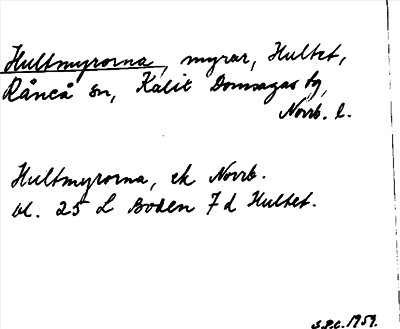 Hultmyrorna, myrar, Hultet,
Råneå sn, Kalix Domsagas tg,
Norrb. l.
Hultmyrorna, ek Norrb.
bl. 25 L Boden 7 d Hultet.
S.P.C. 1959.